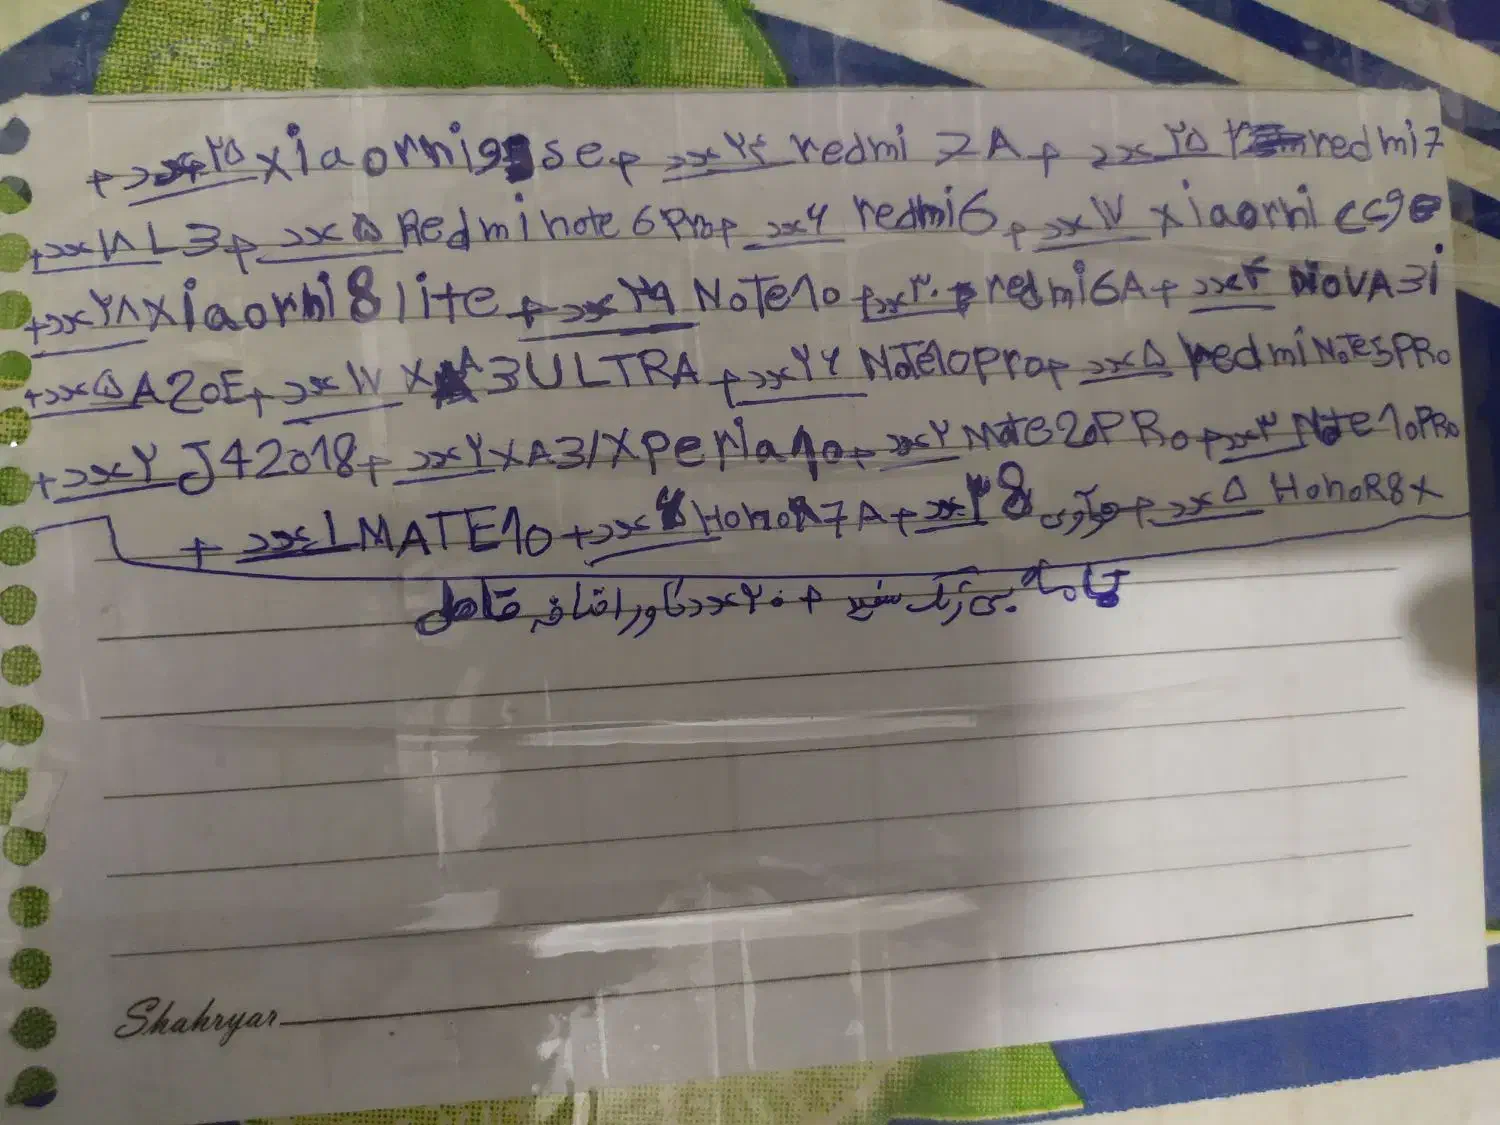 + عدد۲۵ xiaomi9se + عدد۲۴ redmi 7A + عدد۲۵ redmi7
+ عدد۱۸ L3 + عدد۵ Redmi note 6 Pro + عدد۶ redmi6 + عدد۱۷ xiaomi cc9e
+ عدد۲۸ xiaomi8lite + عدد۲۹ NoTe10 + عدد۳۰ redmi6A + عدد۴ NOVA3i
+ عدد۵ A20E + عدد۱۷ XA3ULTRA + عدد۲۶ NOTe10pro + عدد۵ redmi NoTe5PRo
+ عدد۲ J42018 + عدد۲ XA3/Xperia10 + عدد۲ Mate20PRo + عدد۳ Note10PRo
+ عدد۱ MATE10 + عدد HonoR7A + عدد۳ 8 + عدد۵ HonoR8x
سفید + ۲۰عدد
Shahryar